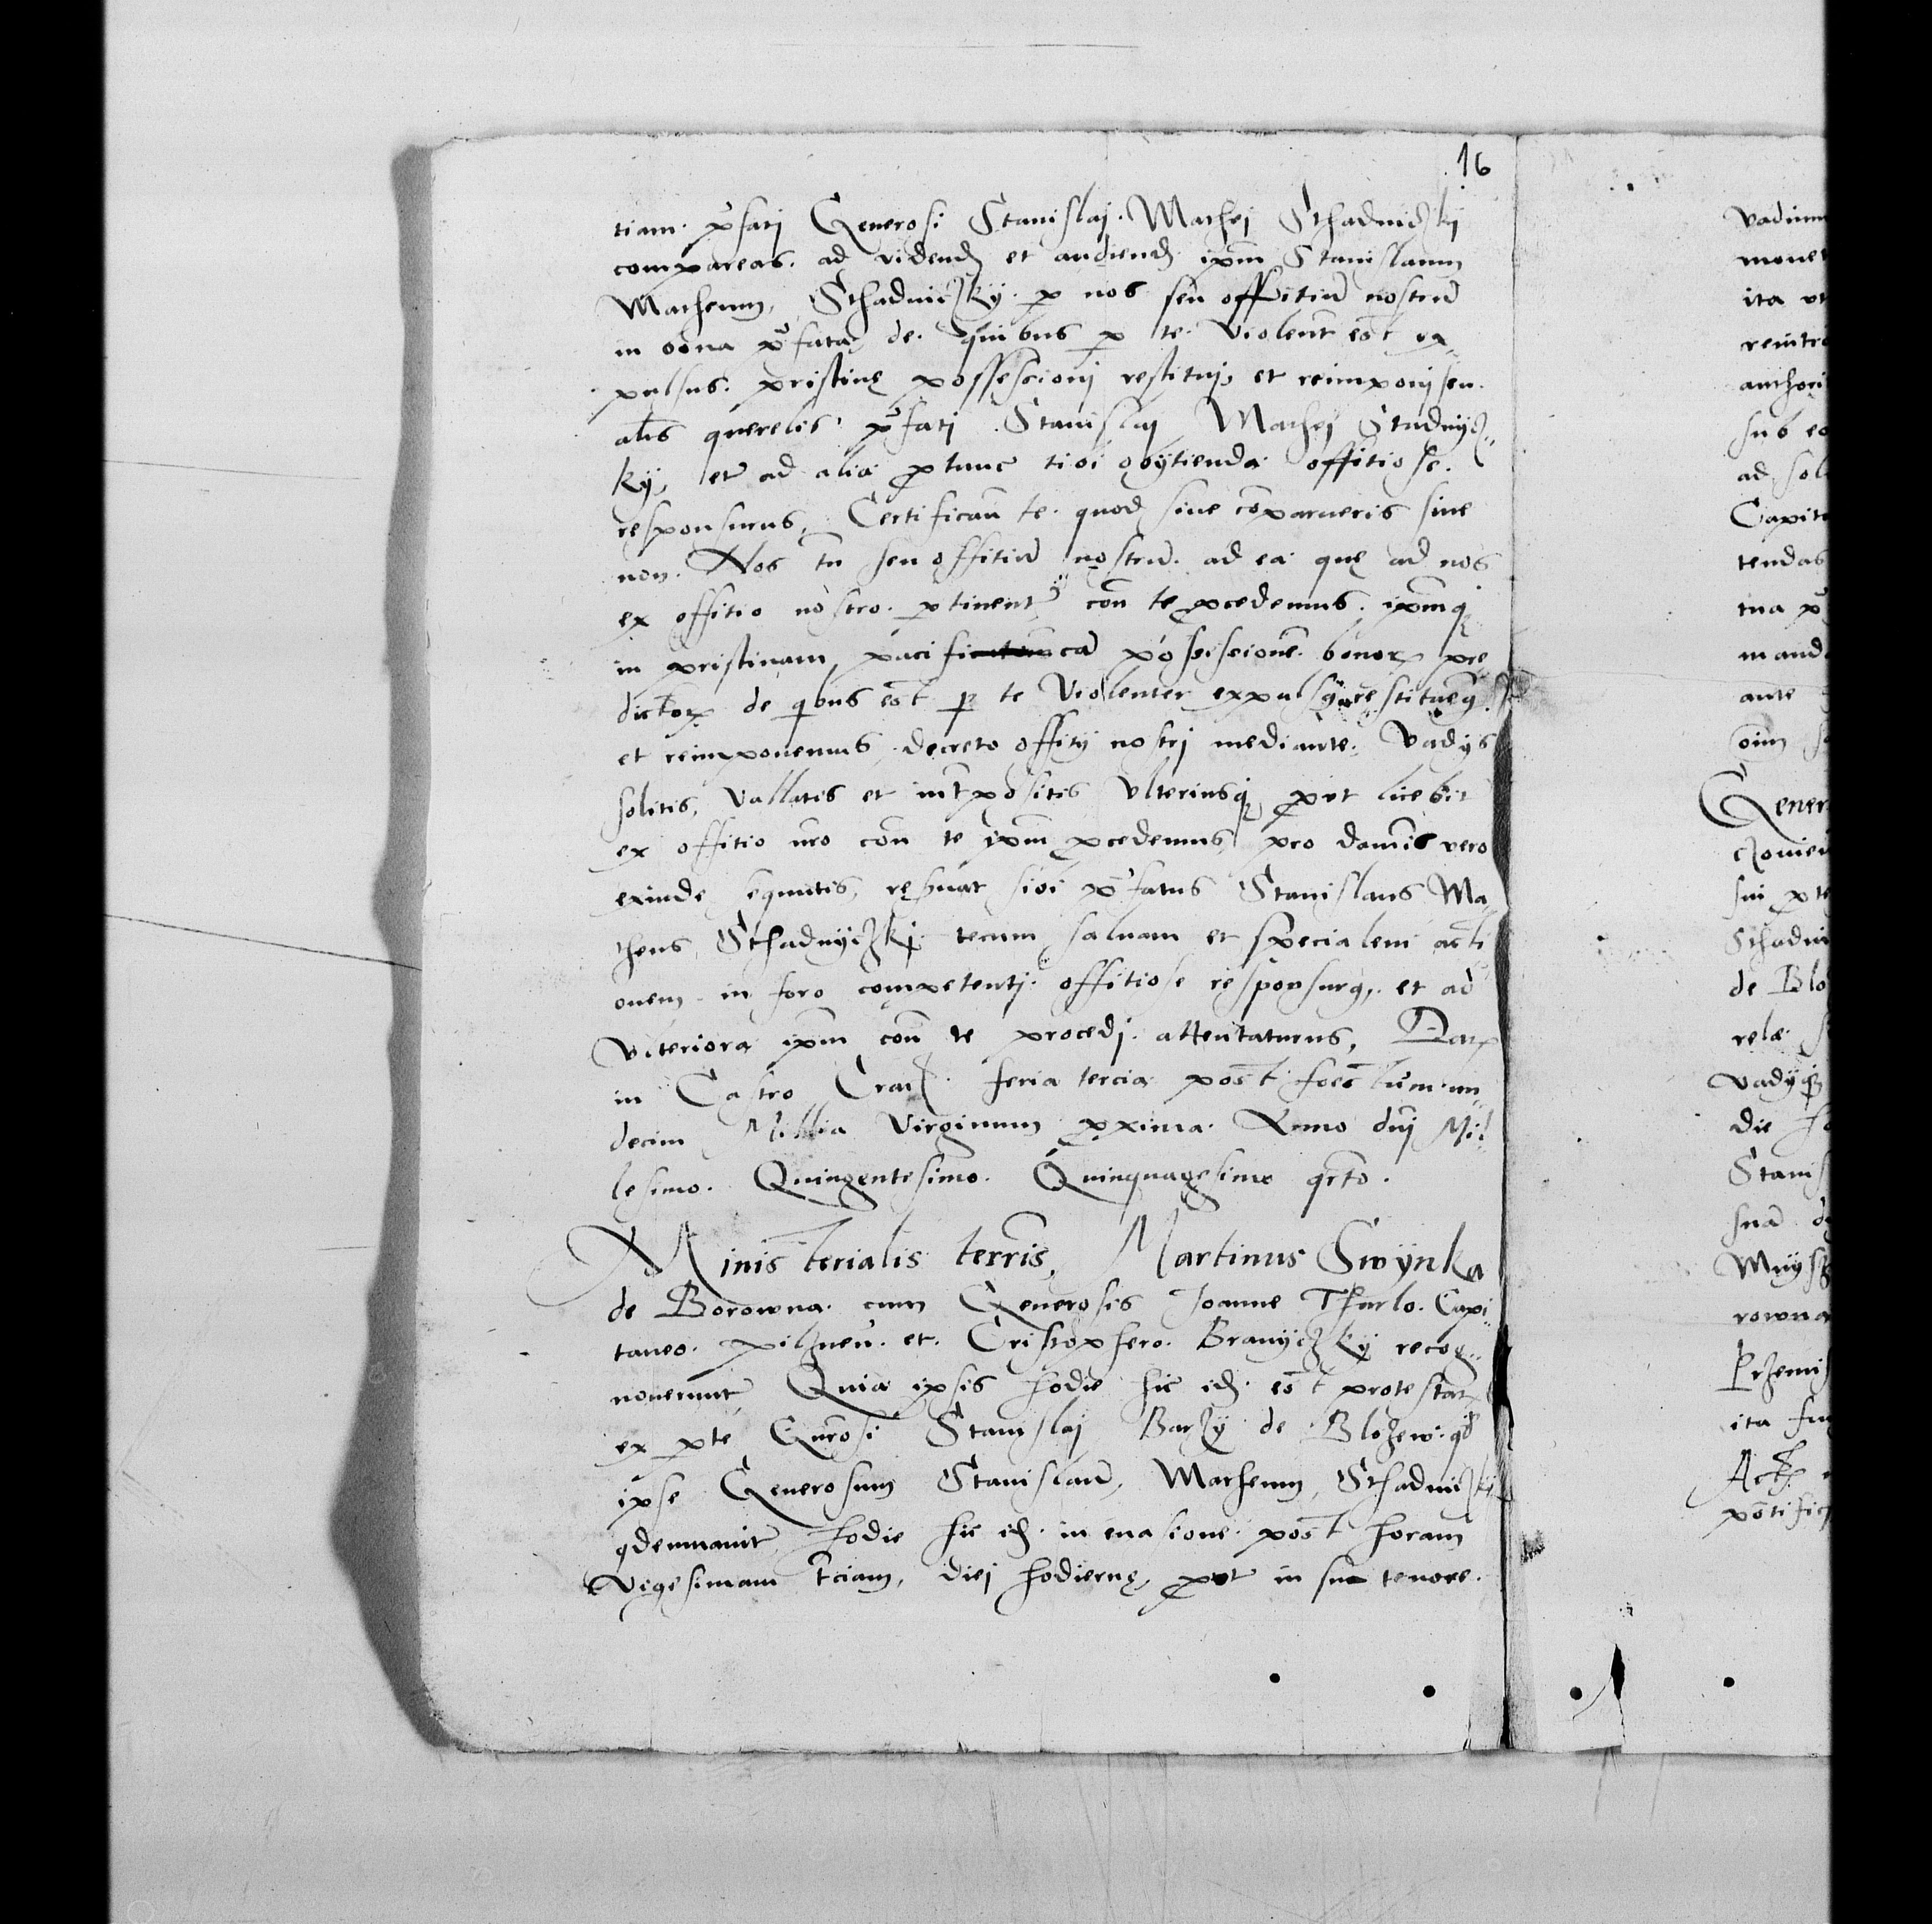 16
tiam. p̃fatj Generosi Stanislaj. Mathej Sthadniczkij
compareas. ad videnđ et audienđ ipm̃ Stanislaum
Matheum, Sthadniczkÿ. p nos seu offitiũ nostrũ
in bona p̃fata, de. quibus p te. violent̃ est ex„
pulsus. pristinę possessionj restituj, et reimponj seu.
ałs querelis p̃fatj Stanislaj Mathej Stadnÿcz„
kÿ, et ad alia ptunc tibi obÿtienda offitiose.
responsurus, Certifican̄ te. quod siue cõparueris siue
non. Nos tñ seu offitiũ nostrũ. ad ea quę ad nos
ex offitio nostro. ptinent, con̄ te pcedemus. ipm̃q
in pristinam pacificã possessionẽ. bonor pre„
dictor de qbus est p te violenter expulsq restituemq.
et reimponemus decreto offitÿ nostrj mediante. Vadÿs
solitis, vallatis et int̃positis vlteriusq put licebit
ex offitio nr̃o con̄ te ipm̃ pcedemus, pro damñis vero
exinde sequutis, reseruat sibi p̃fatus Stanislaus Ma„
theus, Sthadnÿczkj. tecum saluam et specialem acti„
onem in foro competentj. offitiose responsurq, et ad
vlteriora ipm̃ con̄ te procedj. attentaturus, Dat
in Castro Crac. feria tercia post festum un„
decim Millia Virginum pxima. Anno dñj Mil„
lesimo. Quingentesimo. Quinquagesimo qrto.
Ministerialis terrẽs, Martinus Swÿnka
de Borowna. cum Generosis Joanne Tharlo. Capi„
taneo. pilznen̄. et. Cristophero. Branÿczkÿ recog„
nouerunt, Quia ipsis hodie hic iđ. est protestat
ex pte Gnr̃osi Stanislaj Barzÿ de Blozew. qđ
ipse Generosum Stanislaũ, Matheum, Sthadniczkÿ
qdemnauit hodie hic iđ. in euasione. post horam
vigesimam t̃ciam, diej hodiernę, put in suo tenore.
vadium
monet
ita vt
reintro
authori
sub eo
ad sol
Capit
tendas
tua p
mand
ante
oim̃
Gener
czouien
sui pte
Sthadni
de Blo
relæ
vadÿq
die
Stanis
suã
Mnysz
rowna
Przemis
ita
Act
pontific